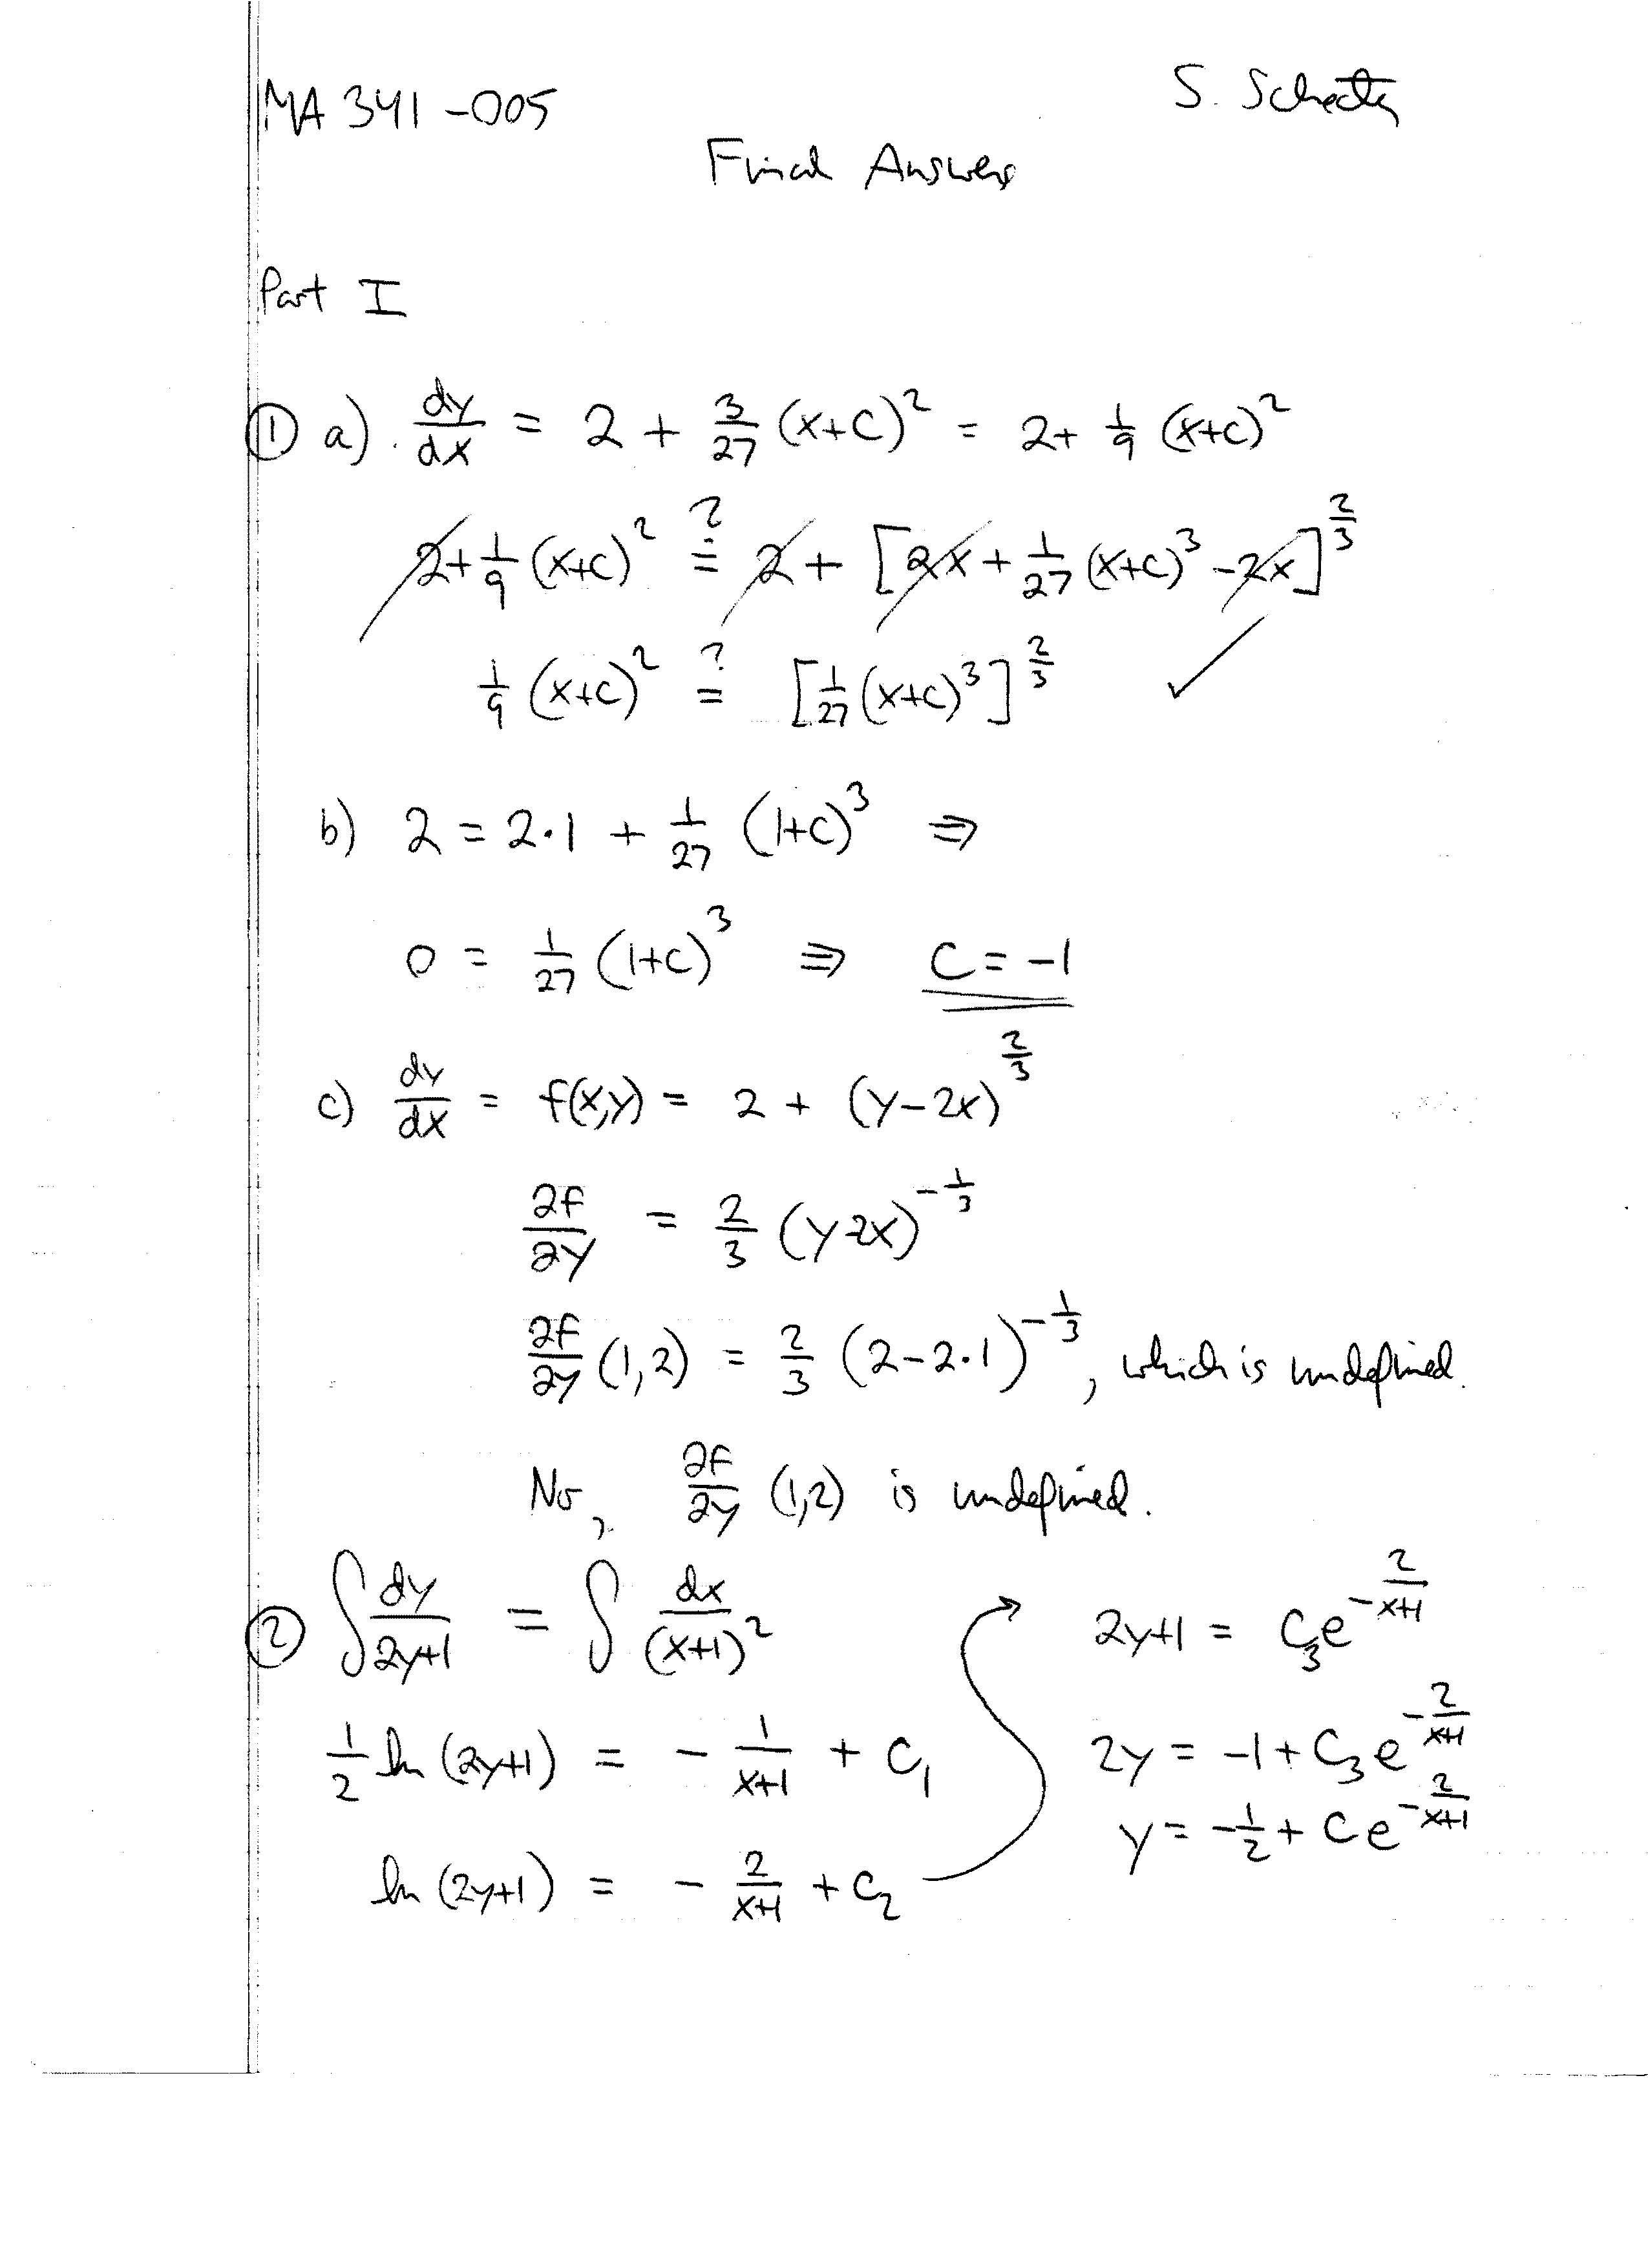 MA 341-005
S. Schecter
Final Answers
Part I
① a). dy/dx = 2 + 3/27 (x+C)² = 2+ 1/9 (x+C)²
2+1/9 (x+C)² ?= 2 + [2x + 1/27 (x+C)³ -2x]^(2/3)
1/9 (x+C)² ?= [1/27 (x+C)³]^(2/3) ✓
b) 2 = 2·1 + 1/27 (1+C)³ ⇒
0 = 1/27 (1+C)³ ⇒ C = -1
c) dy/dx = f(x,y) = 2 + (y-2x)^(2/3)
∂f/∂y = 2/3 (y-2x)^(-1/3)
∂f/∂y (1,2) = 2/3 (2-2·1)^(-1/3), which is undefined.
No, ∂f/∂y (1,2) is undefined.
② ∫ dy/(2y+1) = ∫ dx/(x+1)²
1/2 ln (2y+1) = - 1/(x+1) + C₁
ln (2y+1) = - 2/(x+1) + C₂
2y+1 = C₃e^(-2/(x+1))
2y = -1 + C₃e^(-2/(x+1))
y = -1/2 + Ce^(-2/(x+1))